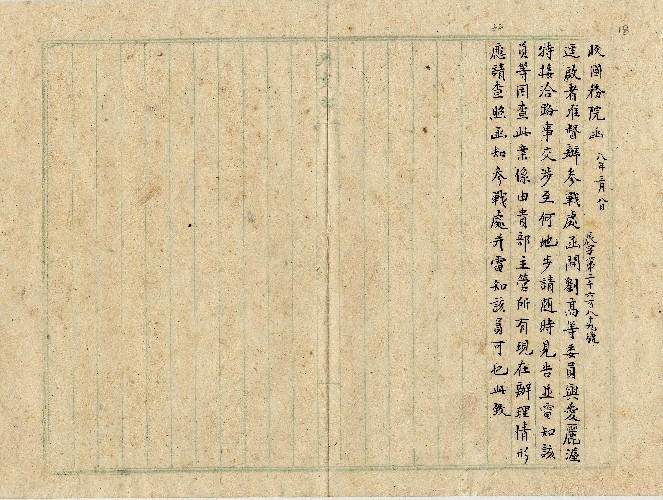 18
收國務院函 八年三月八日 第二千六百八十九號
逕啟者准督辦參戰處函開劉高等委員與愛麗
特接洽路事交涉至何地步請隨時見告並電知該
員等因查此案係由貴部主管所有現在辦理情形
應請查照函知參戰處并電知該員可也此致